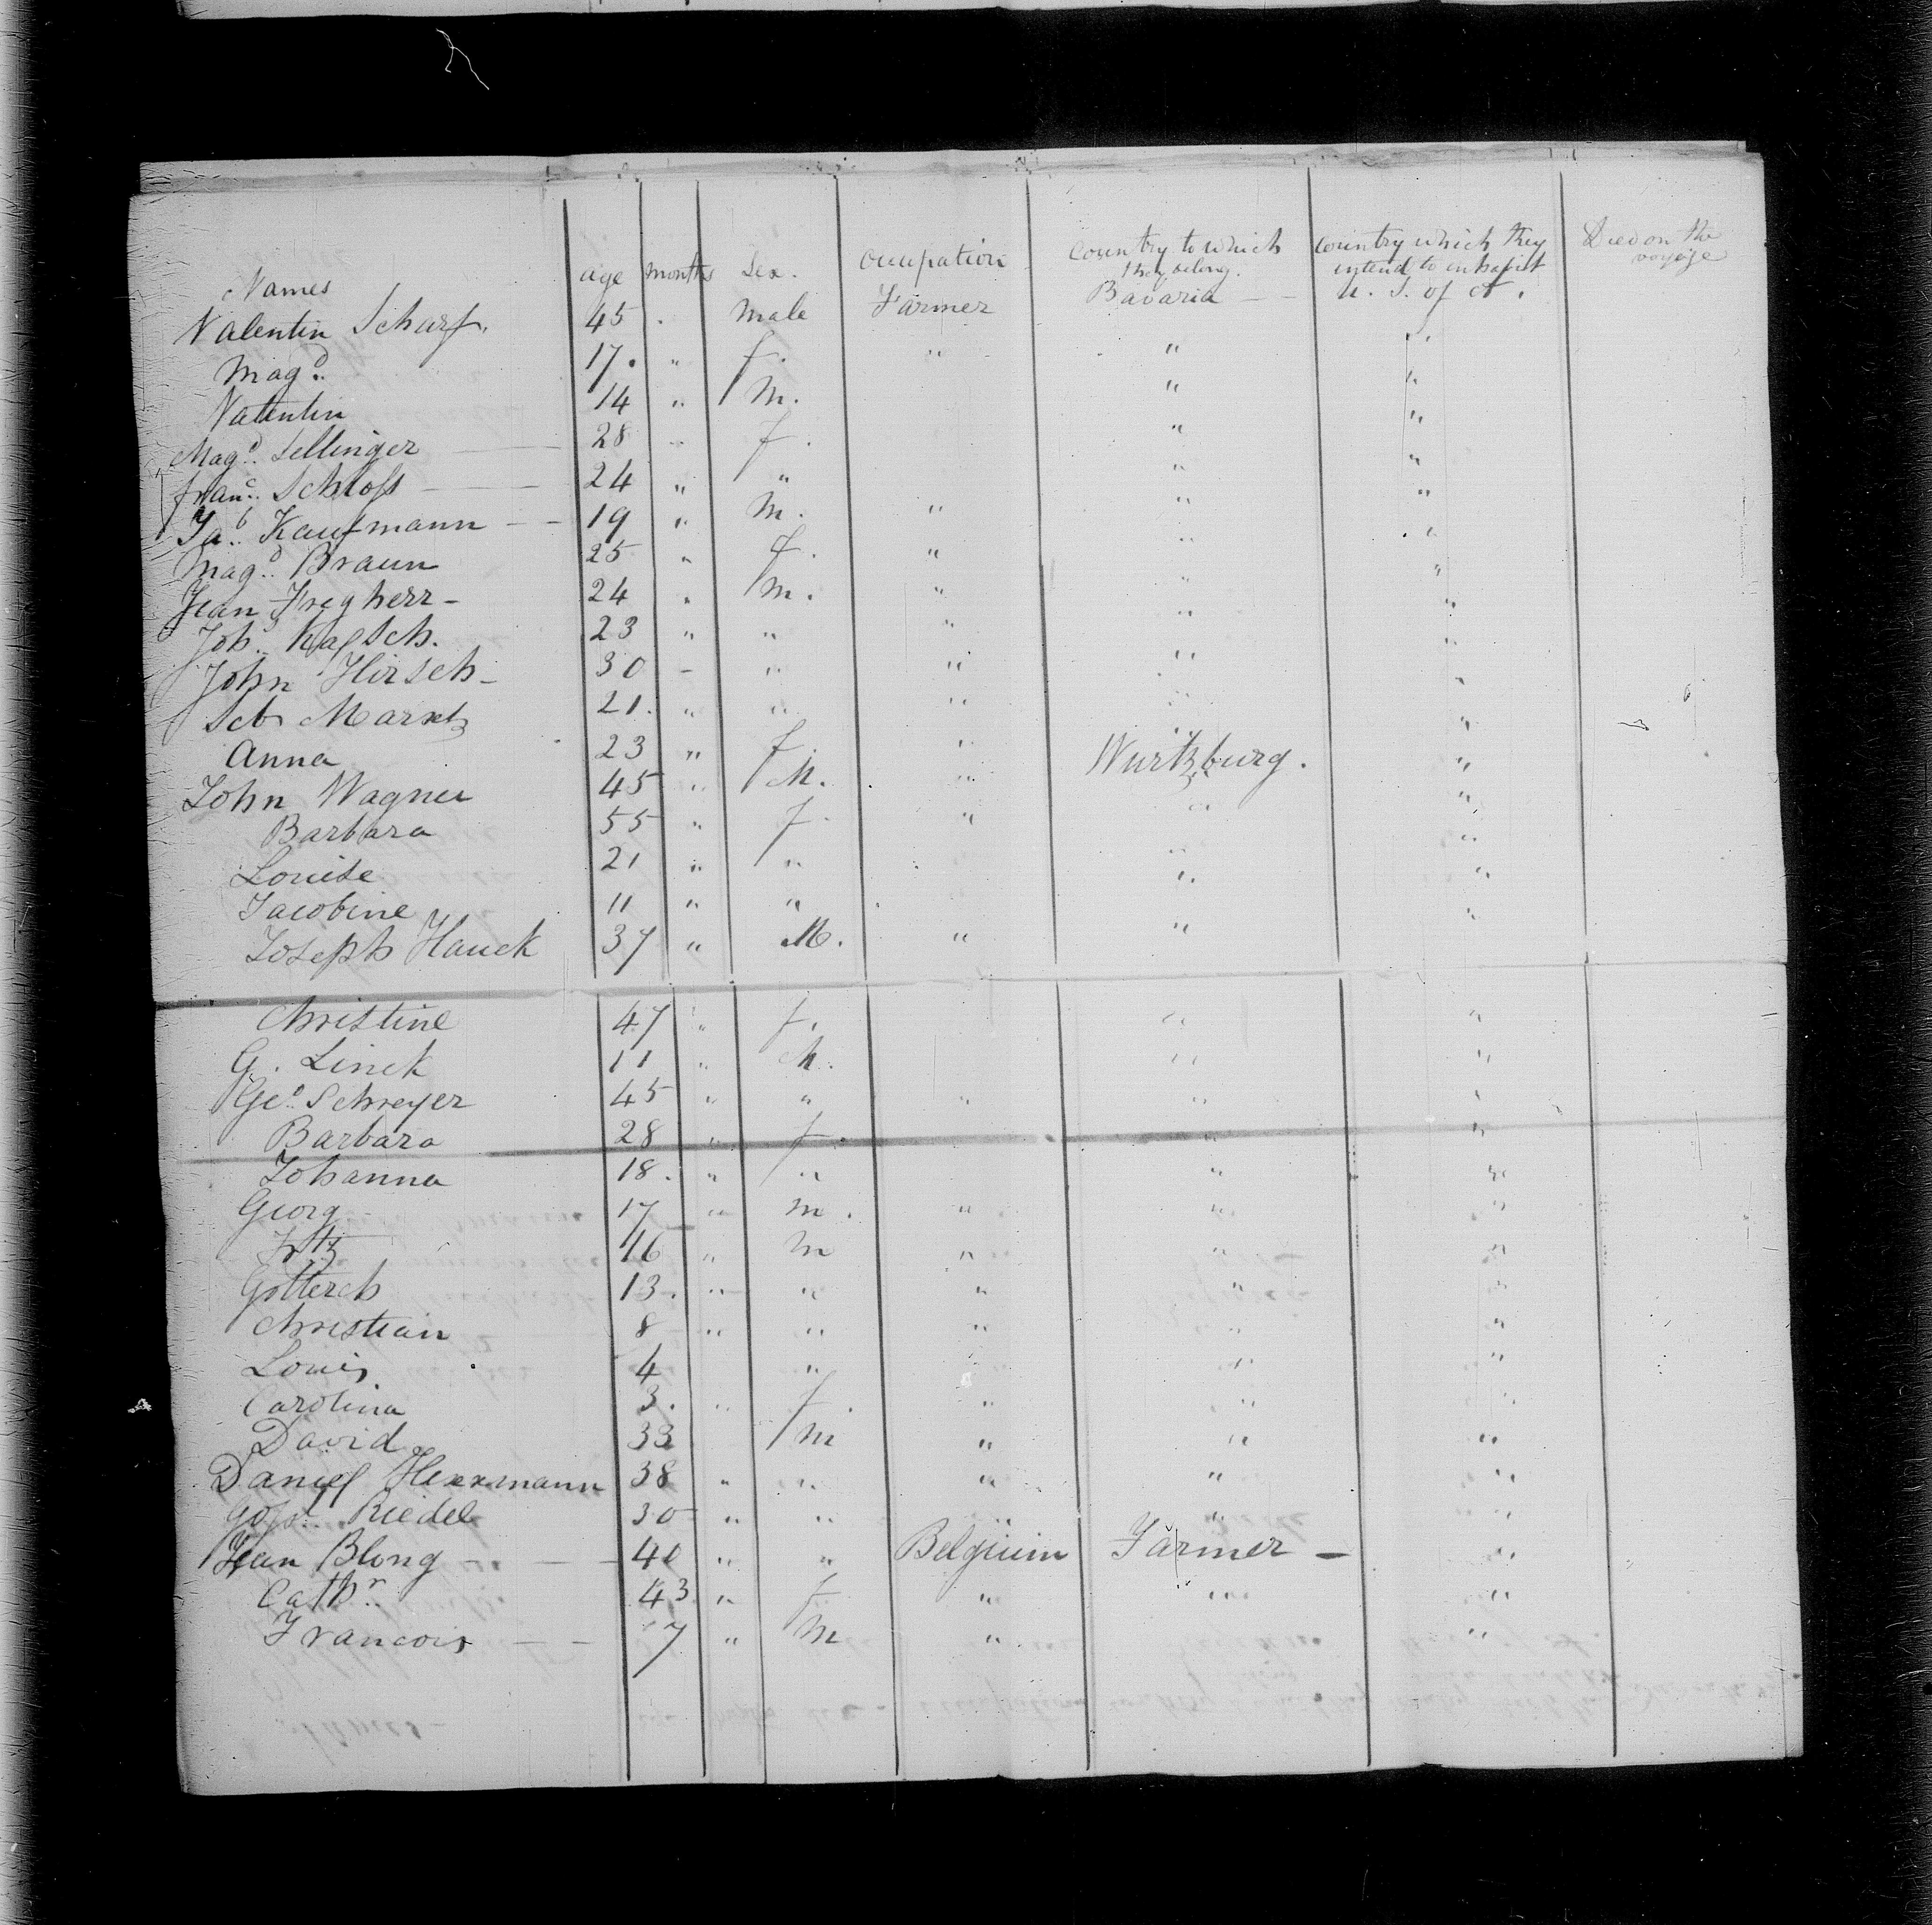 Names age months Sex. Occupation Country to which they belong. Country which they intend to inhabit Died on the voyage
Valentin Scharf. 45 . Male Farmer Bavaria — — U. S. of A.
Magd. 17. " f. " " "
Valentin 14 " m. " "
Magd. Sellinger 28 " f. " "
Franc. Schloss 24 " " " "
Jab. Kaufmann 19 " m. " " "
Magd. Braun 25 " f. " " "
Jean Freyherr 24 " m. " " "
Joh. Kagsch. 23 " " " " "
John Hirsch 30 - " " " "
Seb Marxtz 21. " " " " "
Anna 23 " f. " " "
John Wagner 45 " M. " Wurtzburg. "
Barbara 55 " f. " " "
Louise 21 " " " "
Jacobine 11 " " " "
Joseph Hauck 37 " M. " " "
Christine 47 " f. " "
G. Linck 11 " M. " "
Geo. Schreyer 45 " " " " "
Barbara 28 " f. " "
Johanna 18. " " " "
Georg 17 " m. " " "
Fritz 16 " m " " "
Gotterch 13. " " " " "
Christian 8 " " " " "
Louis 4 " " "
Carolina 3. " f " " "
David 33 m " " "
Daniel Herrmann 38 " " " " "
Riedel 30 " " " " "
Jean Blong 40 " " Belgium Farmer — "
Cathr. 43 " f " " "
Francois 7 " m " "